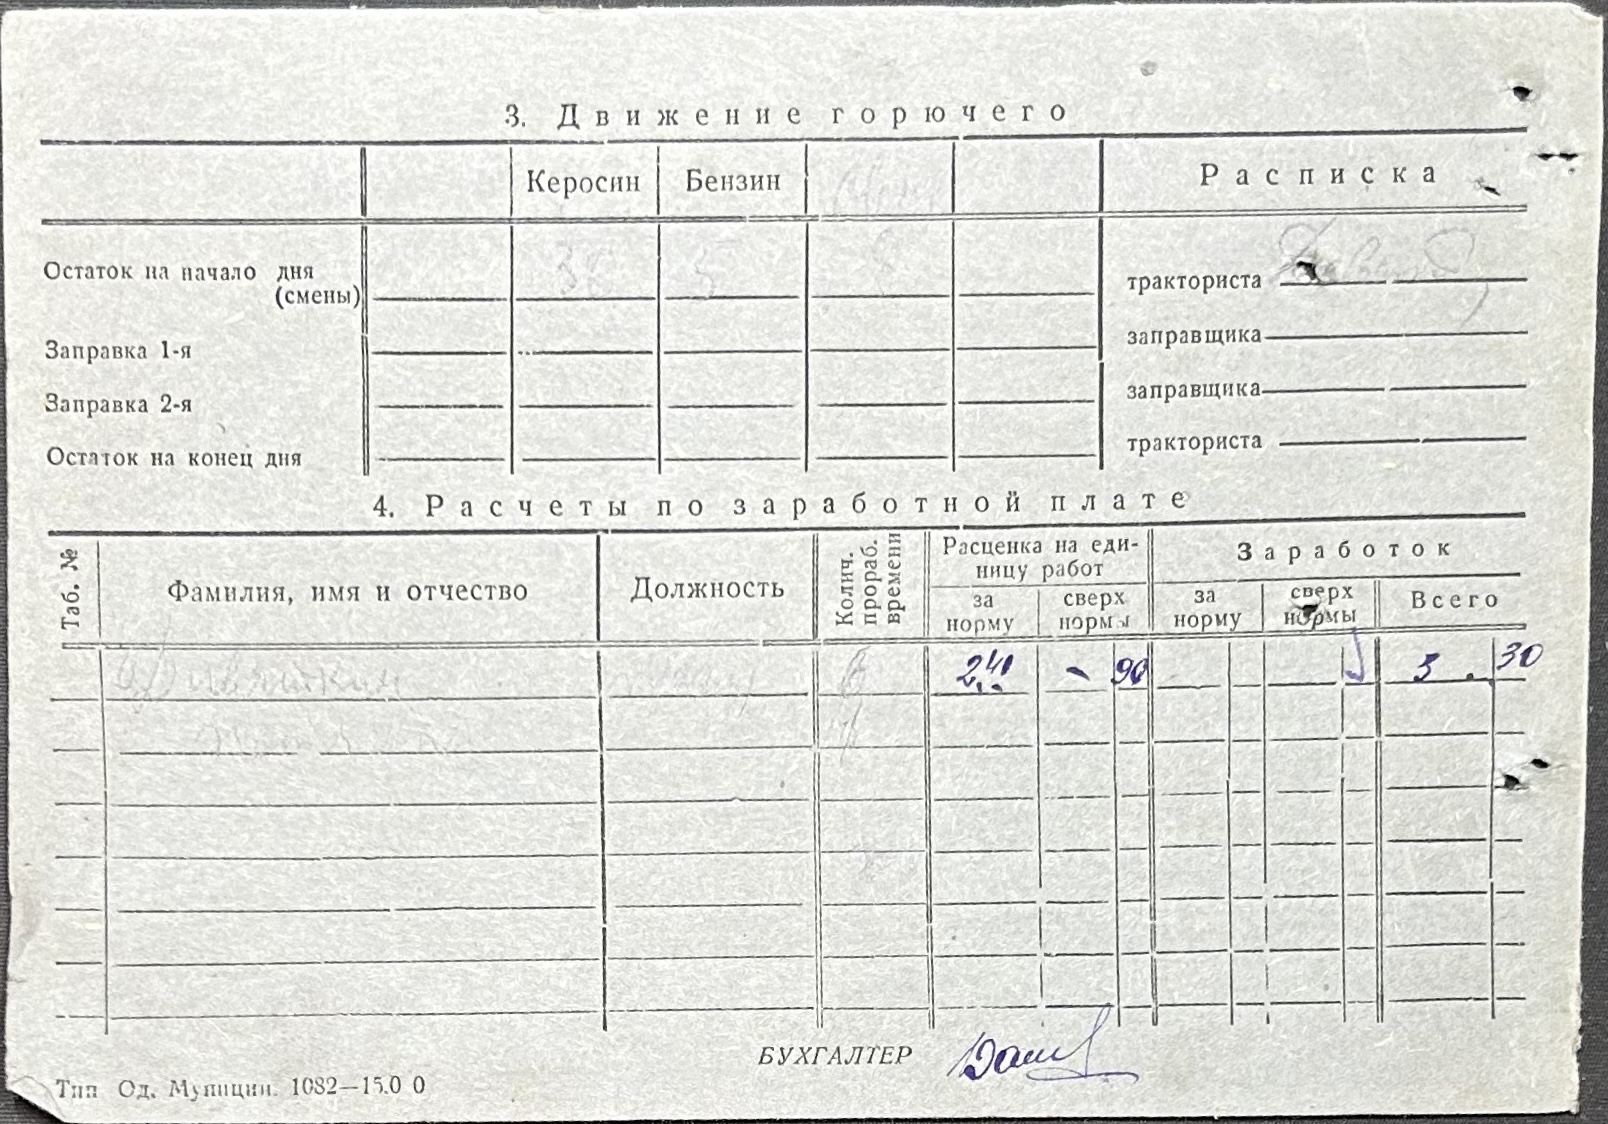 3. Движение горючего
Керосин Бензин Расписка
Остаток на начало дня
(смены) 30 5 8 тракториста
Заправка 1-я заправщика
Заправка 2-я заправщика
Остаток на конец дня тракториста
4. Расчеты по заработной плате
Таб. № Фамилия, имя и отчество Должность Колич. прораб. времени Расценка на еди-
ницу работ Заработок
за
норму сверх
нормы за
норму сверх
нормы Всего
2 40 - 90 3 . 30
БУХГАЛТЕР
Тип Од. Муниции. 1082—15.0 0